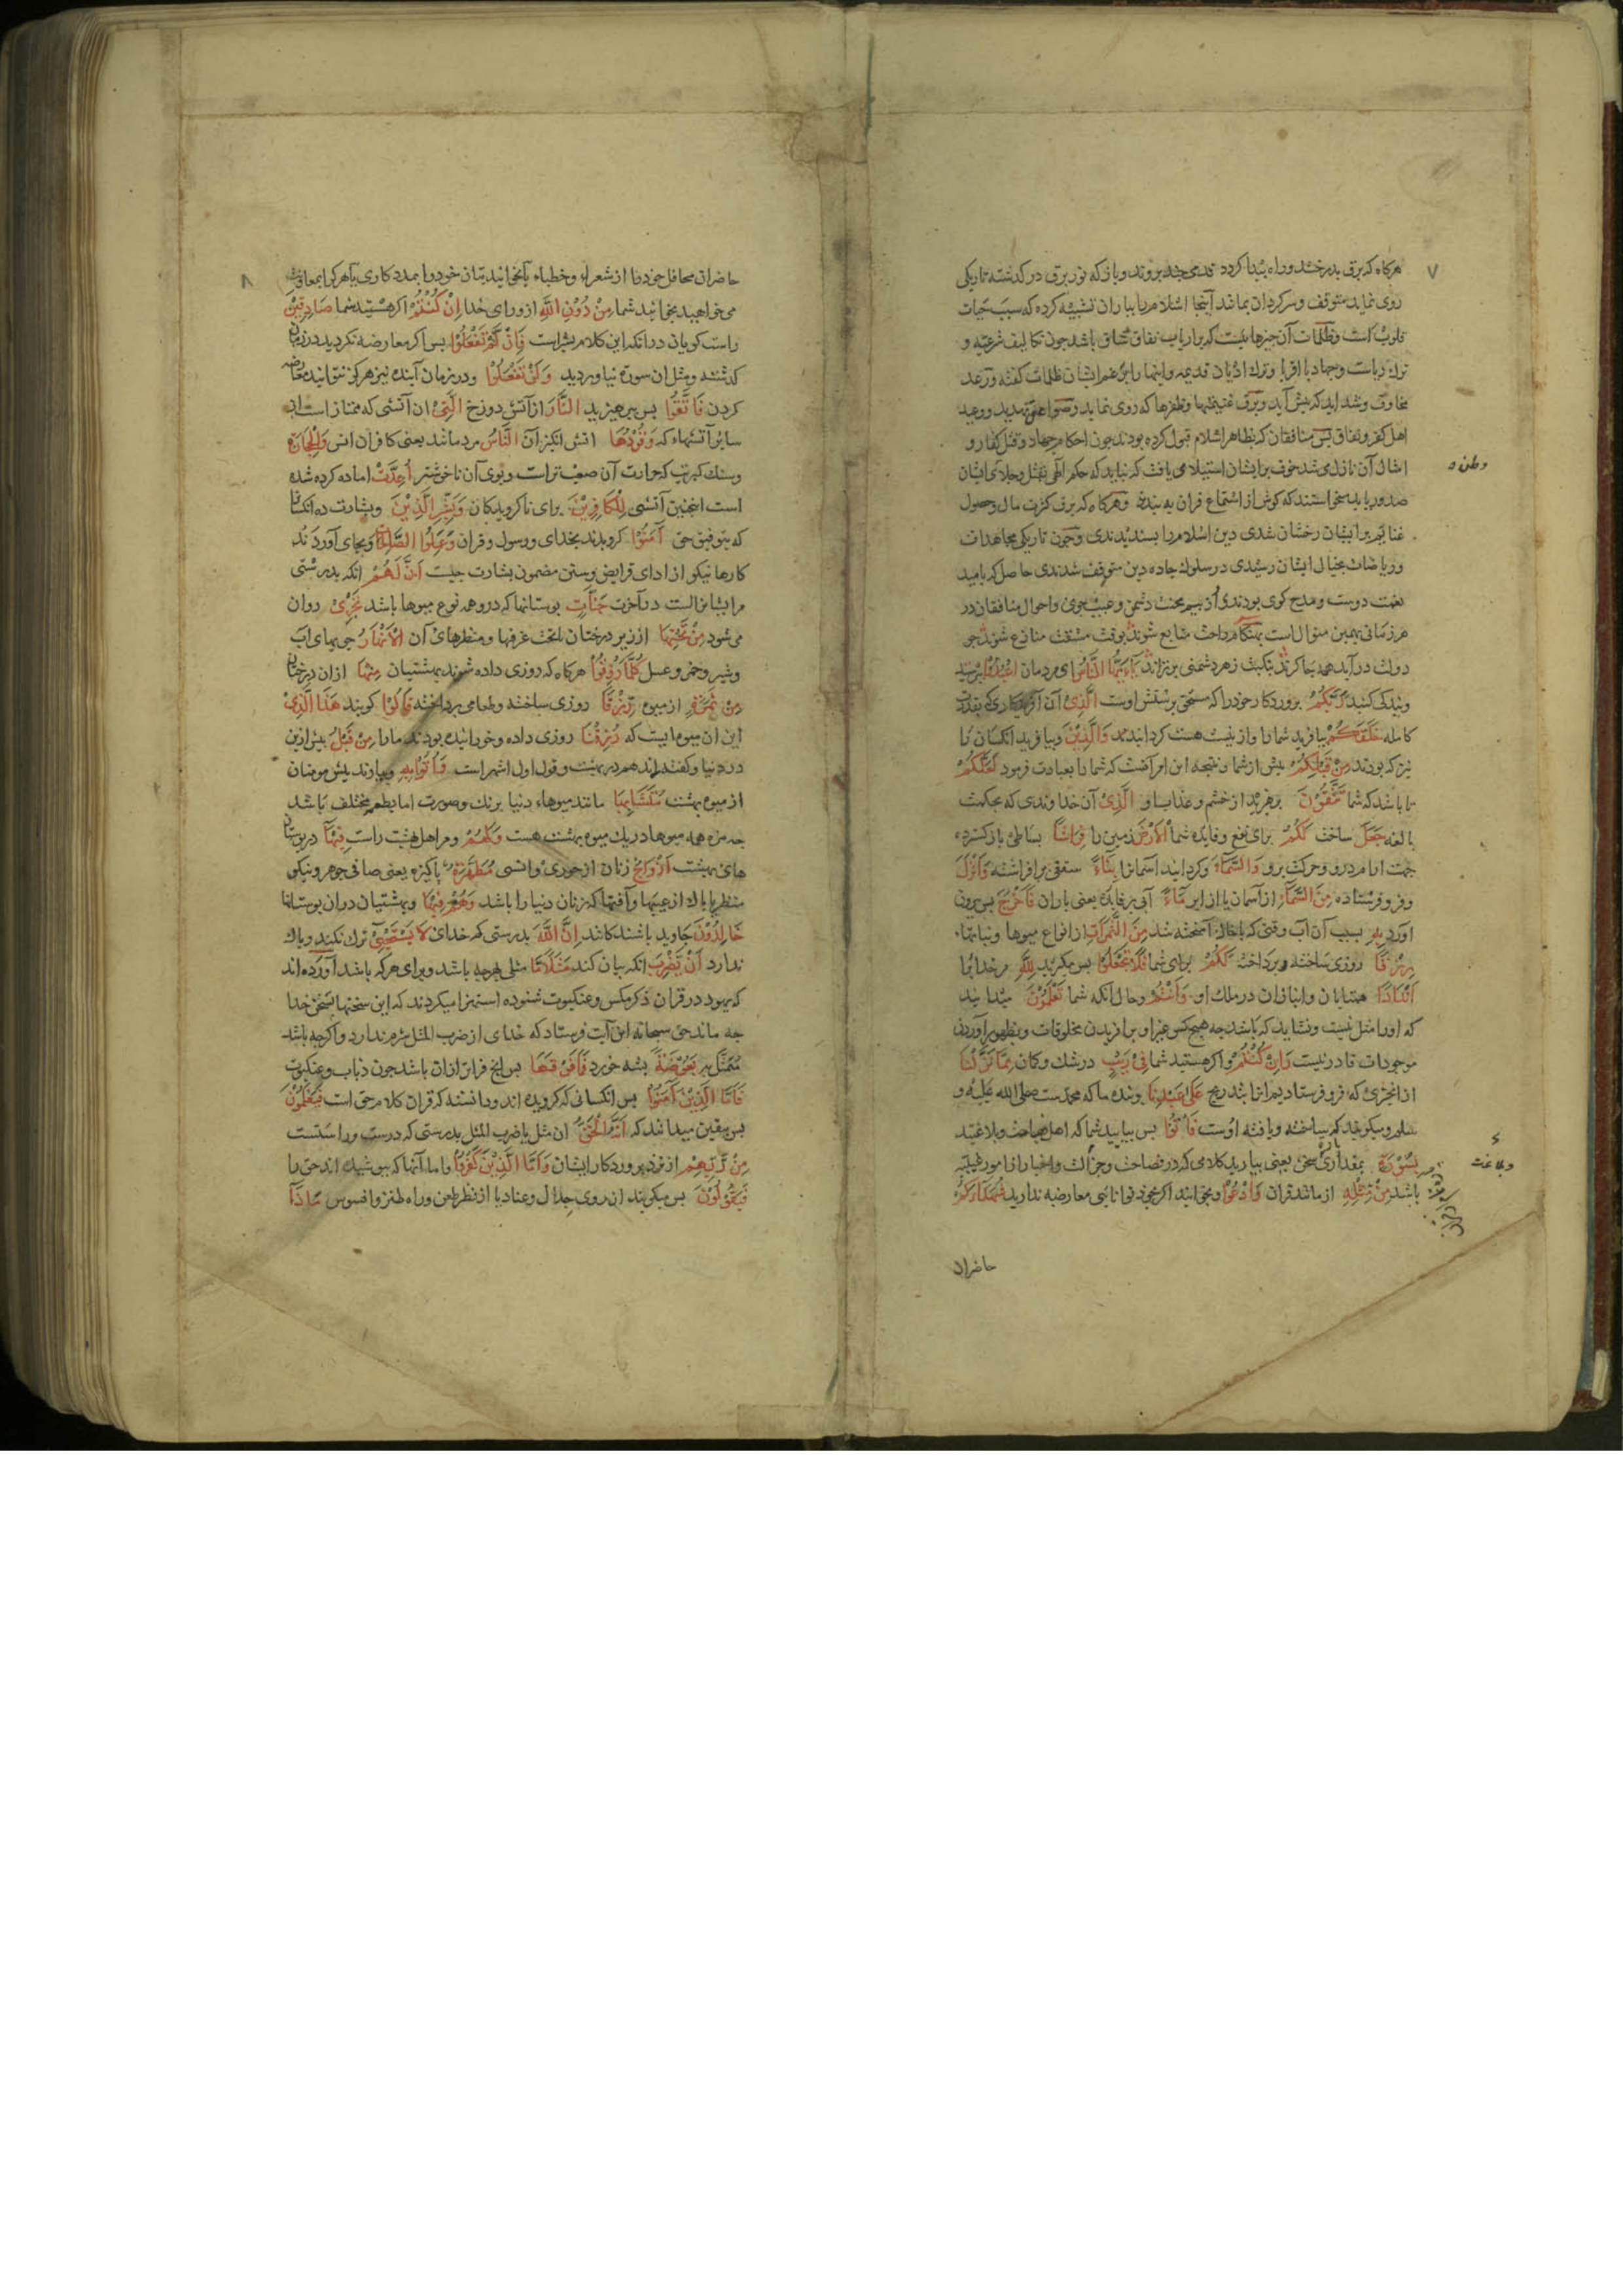 ۷
هرکاه که برق بدرخشد وراه پیدا کردد قدمی چند بروند وباز که نور برق در کذشته تاریکی
روی نماید متوقف وسرکردان بمانند آینجا اسلام را بباران تشبیه کرده که سبب حیات
قلوب است وظلمات آن چیزهاییست که بر ارباب نفاق شاق باشد چون تکالیف شرعیه و
ترك ریاست وجهاد با اقربا وترك ادیان قدیمه واینها را بزعم ایشان ظلمات کفته ورعد
مخاوف وشداید که پیش آید وبرق غنیمتها وظفرها که روی نماید وصواعق تهدید ووعید
اهل کفر ونفاق پس منافقان که بظاهر اسلام قبول کرده بودند چون احکام جهاد وقتل کفار و
امثال آن نازل می شد خوف بر ایشان استیلا می یافت که نباید که حکم الهی بقتل وجلای ایشان
وطن و
صدور یابد میخواستند که کوش از استماع قران به بندند وهرکاه که برق کثرت مال وحصول
غنایم بر ایشان رخشان شدی دین اسلام را پسندیدندی وچون تاریکی مجاهدات
وریاضات بخیال ایشان رسیدی در سلوك جاده دین متوقف شدندی حاصل که بامید
نعمت دوست ومدح کوی بودندی واز بیم محنت دشمن وعیب جوی واحوال منافقان در
هر زمانی بهمین منوال است بهنکام راحت متابع شوند بوقت مشقت منازع شوند چو
دولت در آید همه چاکرند بنکبت زهر دشمنی برترند یَآءَیُّهَا النَّاسُ ای مردمان اعْبُدُوْا پرستید
وبندکی کنید رَبَّکُمُ پروردکار خود را که مستحق پرستش اوست الَّذِیْ آن آفریدکاری که بقدرت
کامله خَلَقَکُمْ بیافرید شما را واز نیست هست کردانید وَالَّذِیْنَ وبیافرید انکسان را
نیز که بودند مِنْ قَبْلِکُمْ پیش از شما ونتیجه این امر آنست که شما را بعبادت فرمود لَعَلَّکُمْ
تا باشد که شما تَتَّقُوْنَ بپرهیزید از خشم وعذاب او الَّذِیْ آن خداوندی که بحکمت
بالغه جَعَلَ ساخت لَکُمُ برای نفع وفایده شما الْاَرْضَ زمین را فِرَاشًا بساطی بازکسترده
جهت ارام درو وحرکت برو وَالسَّمَآءَ وکردانید آسمانرا بِنَآءً سقفی برافراشته وَاَنْزَلَ
وفرو فرستاده مِنَ السَّمَآءِ از آسمان یا از ابر مَآءً آبی پرفایده یعنی باران فَاَخْرَجَ پس بیرون
اورد بِهِ بسبب آن آب وقتی که باخاك آمیخته شد مِنَ الثَّمَرَاتِ از انواع میوها ونباتها
رِزْقًا روزی ساخته وپرداخته لَکُمْ برای شما فَلَا تَجْعَلُوْا پس مکیرید لِلّٰهِ مر خدایرا
اَنْدَادًا همتایان وانبازان در ملك او وَاَنْتُمْ وحال آنکه شما تَعْلَمُوْنَ میدانید
که اورا مثل نیست ونشاید که باشد چه هیچکس بغیر او بر آفریدن مخلوقات وبظهور آوردن
موجودات قادر نیست وَاِنْ کُنْتُمْ واکر هستید شما فِیْ رَیْبٍ در شك وکمان مِمَّا نَزَّلْنَا
از انچیزی که فرو فرستادیم انرا بتدریج عَلٰی عَبْدِنَا بر بنده ما که محمد ست صلی الله علیه و
سلم ومیکویید که ساخته وبافته اوست فَأْتُوْا پس بیایید شما که اهل فصاحت وبلاغتید
بِسُوْرَةٍ بمقدار سخن یعنی بیارید کلامی که در فصاحت وجزالت واخبار از امور غیبیه
وبلاغت
باشد مِنْ مِثْلِهِ از مانند قران وَادْعُوْا وبخوانید اکر بخود توانایی معارضه ندارید شُهَدَآءَکُمْ
حاضران
۸
حاضران محافل خود را از شعراء وخطباء یا بخوانید بتان خود را بمددکاری یا هرکرا بمعاونت
می خواهید بخوانید شما مِنْ دُوْنِ اللّٰهِ از ورای خدا اِنْ کُنْتُمْ اکر هستید شما صَادِقِیْنَ
راست کویان در انکه این کلام بشر است فَاِنْ لَمْ تَفْعَلُوْا پس اکر معارضه نکردید در زمان
کذشته ومثل ان سوره نیاوردید وَلَنْ تَفْعَلُوْا ودر زمان آینده نیز هرکز نتوانید معارضه
کردن فَاتَّقُوا پس بپرهیزید النَّارَ از آتش دوزخ الَّتِیْ ان آتشی که ممتاز است از
سایر آتشها که وَقُوْدُهَا اتش انکیز آن النَّاسُ مردمانند یعنی کافران انس وَالْحِجَارَةُ
وسنك کبریت که حرارت آن صعب تر است وبوی آن ناخوشتر اُعِدَّتْ اماده کرده شده
است اینچنین آتشی لِلْکَافِرِیْنَ برای ناکرویدکان وَبَشِّرِ الَّذِیْنَ وبشارت ده انکسانرا
که بتوفیق حق آمَنُوْا کرویدند بخدای ورسول وقران وَعَمِلُوا الصَّالِحَاتِ وبجای آوردند
کارهاء نیکو از ادای فرایض وسنن مضمون بشارت چیست اَنَّ لَهُمْ انکه بدرستی
مرایشانراست در آخرت جَنَّاتٍ بوستانها که درو همه نوع میوها باشد تَجْرِیْ روان
می شود مِنْ تَحْتِهَا از زیر درختان یا تحت غرفها ومنظرهای آن الْاَنْهَارُ جویهای آب
وشیر وخمر وعسل کُلَّمَا رُزِقُوْا هرکاه که روزی داده شوند بهشتیان مِنْهَا از ان درختان
مِنْ ثَمَرَةٍ از میوه رِزْقًا روزی ساخته وطعامی پرداخته قَالُوْا کویند هٰذَا الَّذِیْ
این ان میوه ایست که رُزِقْنَا روزی داده وخورانیده بودند مارا مِنْ قَبْلُ پیش ازین
در دنیا وکفته اند هم در بهشت وقول اول اشهر است وَاُتُوْا بِهِ وبیارند پیش مومنان
از میوه بهشت مُتَشَابِهًا مانند میوهاء دنیا برنك وصورت اما بطعم مختلف باشد
چه مزه همه میوها در یك میوه بهشت هست وَلَهُمْ ومر اهل بهشت راست فِیْهَا در بوستان
های بهشت اَزْوَاجٌ زنان از حوری وانسی مُطَهَّرَةٌ پاکیزه یعنی صافی جوهر ونیکو
منظر یا پاك از عیبها وآفتها که زنان دنیا را باشد وَهُمْ فِیْهَا وبهشتیان دران بوستانها
خَالِدُوْنَ جاوید باشندکانند اِنَّ اللّٰهَ بدرستی که خدای لَا یَسْتَحْیِیْ ترك نکند وباك
ندارد اَنْ یَضْرِبَ انکه بیان کند مَثَلًا مَا مثلی هرچه باشد وبرای هرکه باشد آورده اند
که یهود در قران ذکر مکس وعنکبوت شنوده استهزا میکردند که این سخنها بسخن خدا
چه ماند حق سبحانه این آیت فرستاد که خدای از ضرب المثل شرم ندارد واکرچه باشد
مُتَمَثَّل به بَعُوْضَةً پشه خورد فَمَا فَوْقَهَا پس انچ فراتر ازان باشد چون ذباب وعنکبوت
فَاَمَّا الَّذِیْنَ آمَنُوْا پس انکسانی که کرویده اند ودانستند که قران کلام حق است فَیَعْلَمُوْنَ
پس بیقین میدانند که اَنَّهُ الْحَقُّ ان مثل یا ضرب المثل بدرستی که درست وراستست
مِنْ رَبِّهِمْ از نزد پروردکار ایشان وَاَمَّا الَّذِیْنَ کَفَرُوْا واما آنها که بپوشیده اند حق را
فَیَقُوْلُوْنَ پس میکویند از روی جدال وعناد یا از نظر طعن وراه طنز وافسوس مَاذَا